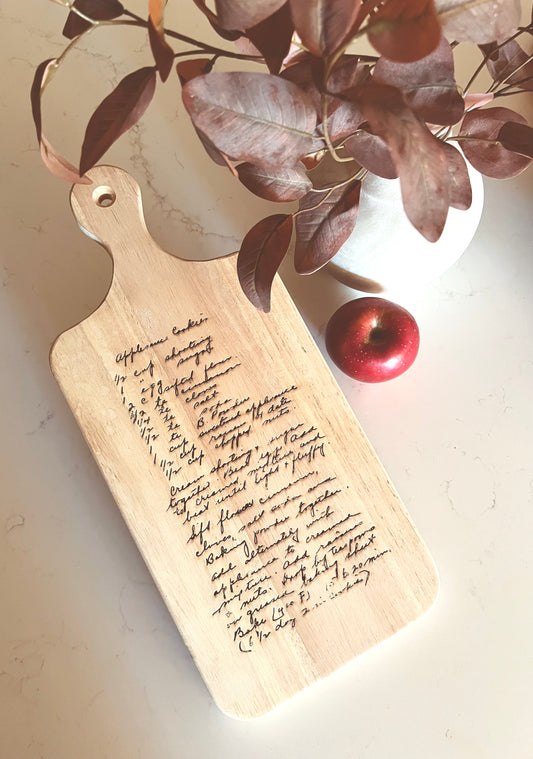 Applesauce Cookies
1/2 cup shortening
1 c sugar
1 egg
2 c sifted flour
1/2 ts cinnamon
ts cloves
1/2 ts salt
ts soda
1 ts B Powder
1 cup unsweet applesauce
1/2 cup raisins or dates
1/2 cup chopped nuts.
Cream shortening & sugar
together. Beat egg add
to creamed mixture and
beat until light & fluffy
Sift flour cinnamon,
cloves, salt soda and
Baking powder together.
add alternately with
applesauce to creamed
mixture. Add raisins
& nuts. Drop by teaspoon
on greased baking sheet
Bake (400 F) 15 to 20 min.
(6 1/2 doz 2 in cookies)